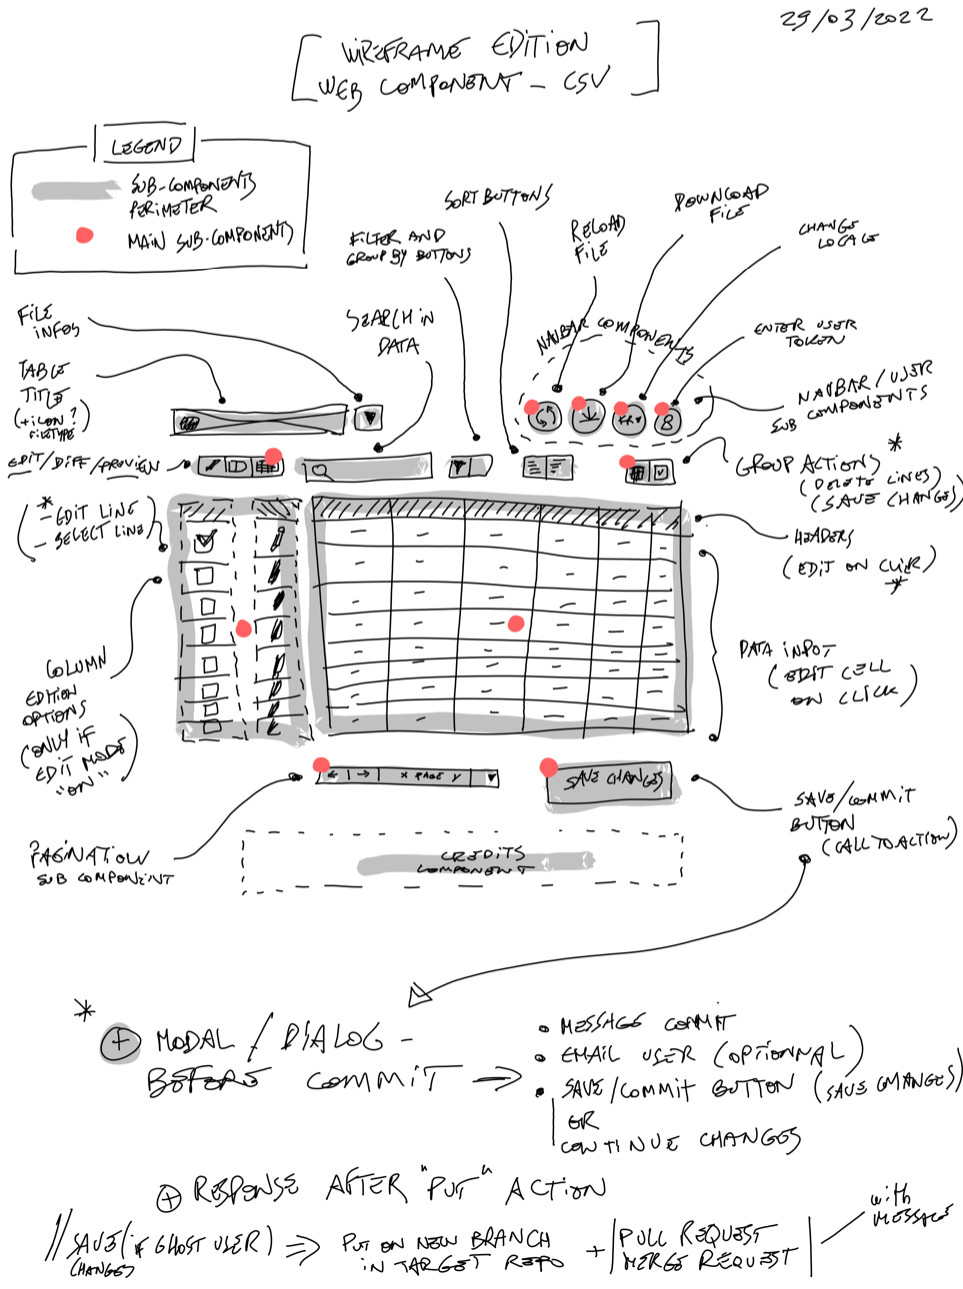 29/03/2022
WIREFRAME EDITION
WEB COMPONENT - CSV
LEGEND
SUB-COMPONENTS
PERIMETER
MAIN SUB-COMPONENTS
SORT BUTTONS
DOWNLOAD
FILE
RELOAD
FILE
CHANGE
LOCALE
FILTER AND
GROUP BY BUTTONS
FILE
INFOS
SEARCH IN
DATA
NAVBAR COMPONENTS
ENTER USER
TOKEN
TABLE
TITLE
(+ icon?
FILETYPE)
NAVBAR/USER
SUB COMPONENTS
EDIT/DIFF/PREVIEW
GROUP ACTIONS *
(DELETE LINES)
(SAVE CHANGES)
*
- EDIT LINE
- SELECT LINE
HEADERS
(EDIT ON CLICK)
*
COLUMN
EDITION
OPTIONS
(ONLY IF
EDIT MODE
"ON")
DATA INPUT
(EDIT CELL
ON CLICK)
← | → | X PAGE Y
SAVE CHANGES
SAVE/COMMIT
BUTTON
(CALL TO ACTION)
PAGINATION
SUB COMPONENT
CREDITS
COMPONENT
*
+ MODAL / DIALOG -
BEFORE COMMIT →
• MESSAGE COMMIT
• EMAIL USER (OPTIONNAL)
• SAVE/COMMIT BUTTON (SAVE CHANGES)
OR
CONTINUE CHANGES
+ RESPONSE AFTER "PUT" ACTION
// SAVE (if GHOST USER) ⇒ PUT ON NEW BRANCH
CHANGES
IN TARGET REPO
+ | PULL REQUEST
MERGE REQUEST |
with
MESSAGE